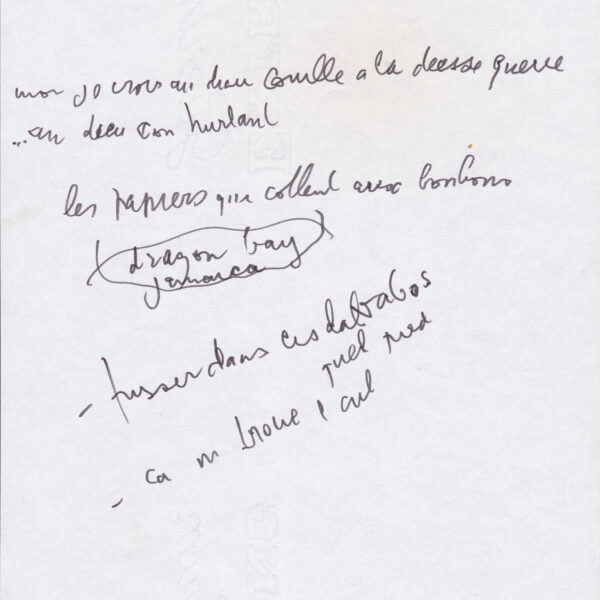 moi je crois au dieu couille a la deesse guerre
...au dieu con hurlant
les papiers qui collent aux bonbons
(dragon bay
jamaica)
- pisser dans ces
quel pied
- ca m troue l cul